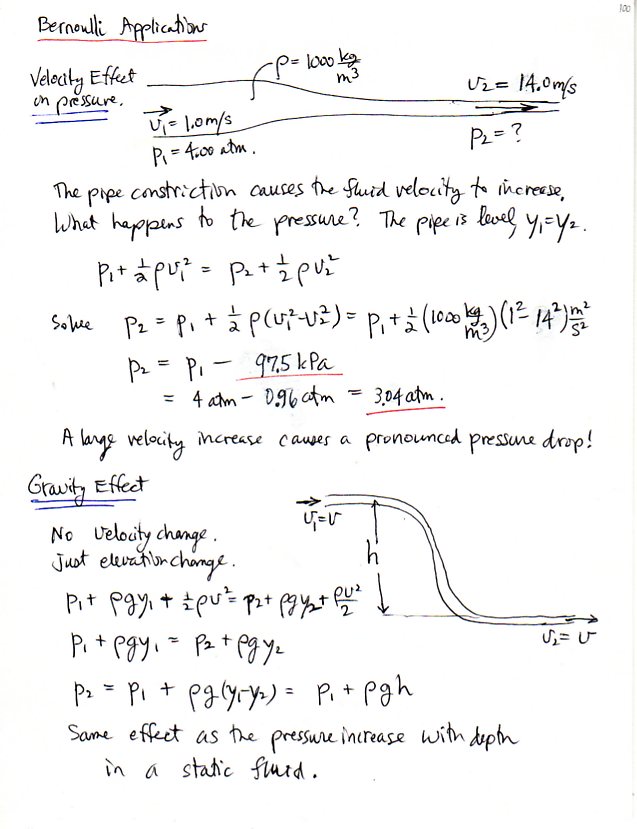 100
Bernoulli Applications
Velocity Effect
on pressure.
ρ = 1000 kg/m³
v₁ = 1.0 m/s
p₁ = 4.00 atm.
v₂ = 14.0 m/s
p₂ = ?
The pipe constriction causes the fluid velocity to increase.
What happens to the pressure? The pipe is level, y₁ = y₂.
p₁ + ½ ρv₁² = p₂ + ½ ρv₂²
Solve p₂ = p₁ + ½ ρ(v₁²-v₂²) = p₁ + ½ (1000 kg/m³)(1² - 14²) m²/s²
p₂ = p₁ - 97.5 kPa
= 4 atm - 0.96 atm = 3.04 atm.
A large velocity increase causes a pronounced pressure drop!
Gravity Effect
v₁ = v
h
v₂ = v
No velocity change.
Just elevation change.
p₁ + ρgy₁ + ½ρv² = p₂ + ρgy₂ + ρv²/2
p₁ + ρgy₁ = p₂ + ρgy₂
p₂ = p₁ + ρg(y₁-y₂) = p₁ + ρgh
Same effect as the pressure increase with depth
in a static fluid.